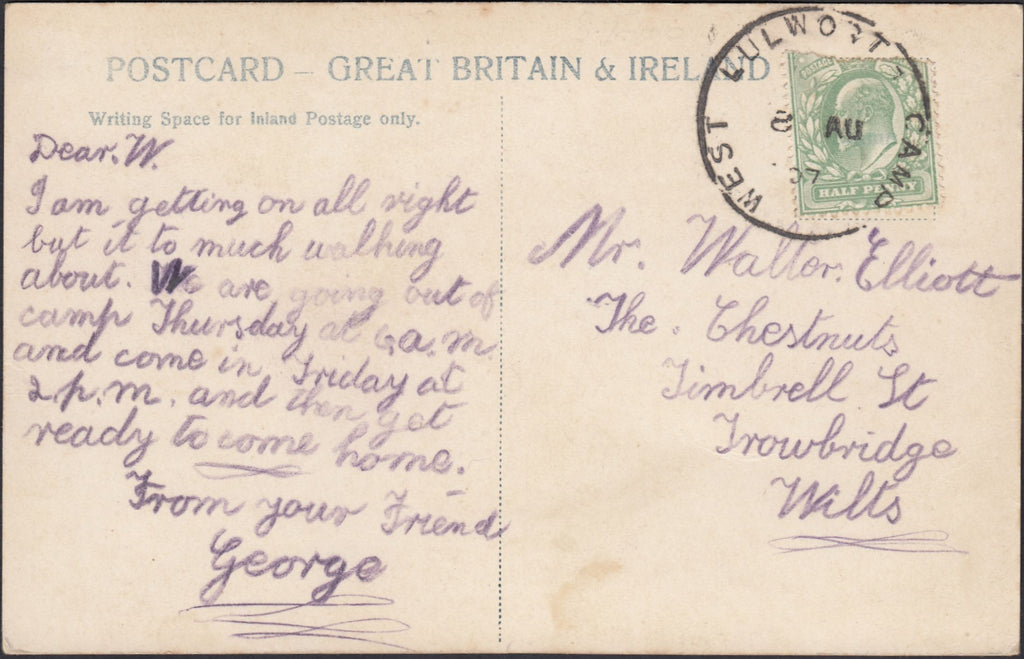 POSTCARD – GREAT BRITAIN & IRELAND
Writing Space for Inland Postage only.
Dear. W.
I am getting on all right
but it to much walking
about. We are going out of
camp Thursday at 6 a.m.
and come in Friday at
2 p.m. and then get
ready to come home.
From your Friend
George
WEST LULWORTH CAMP
8 AU
07
POSTAGE
HALF PENNY
Mr. Walter. Elliott
The. Chestnuts
Timbrell St
Trowbridge
Wilts